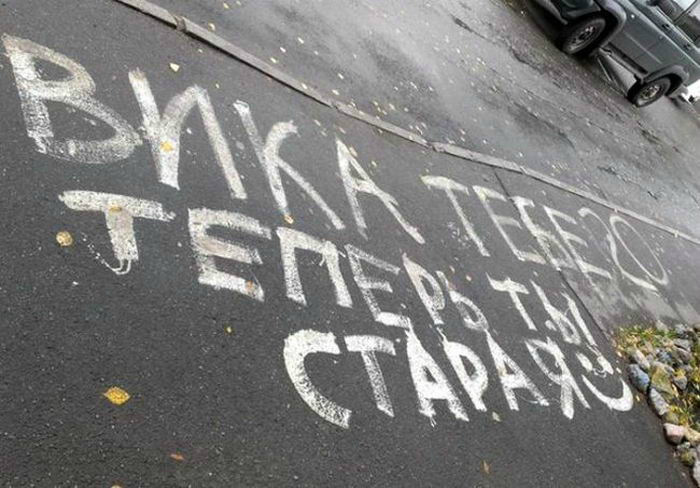 ВИКА ТЕБЕ 20
ТЕПЕРЬ ТЫ
СТАРАЯ